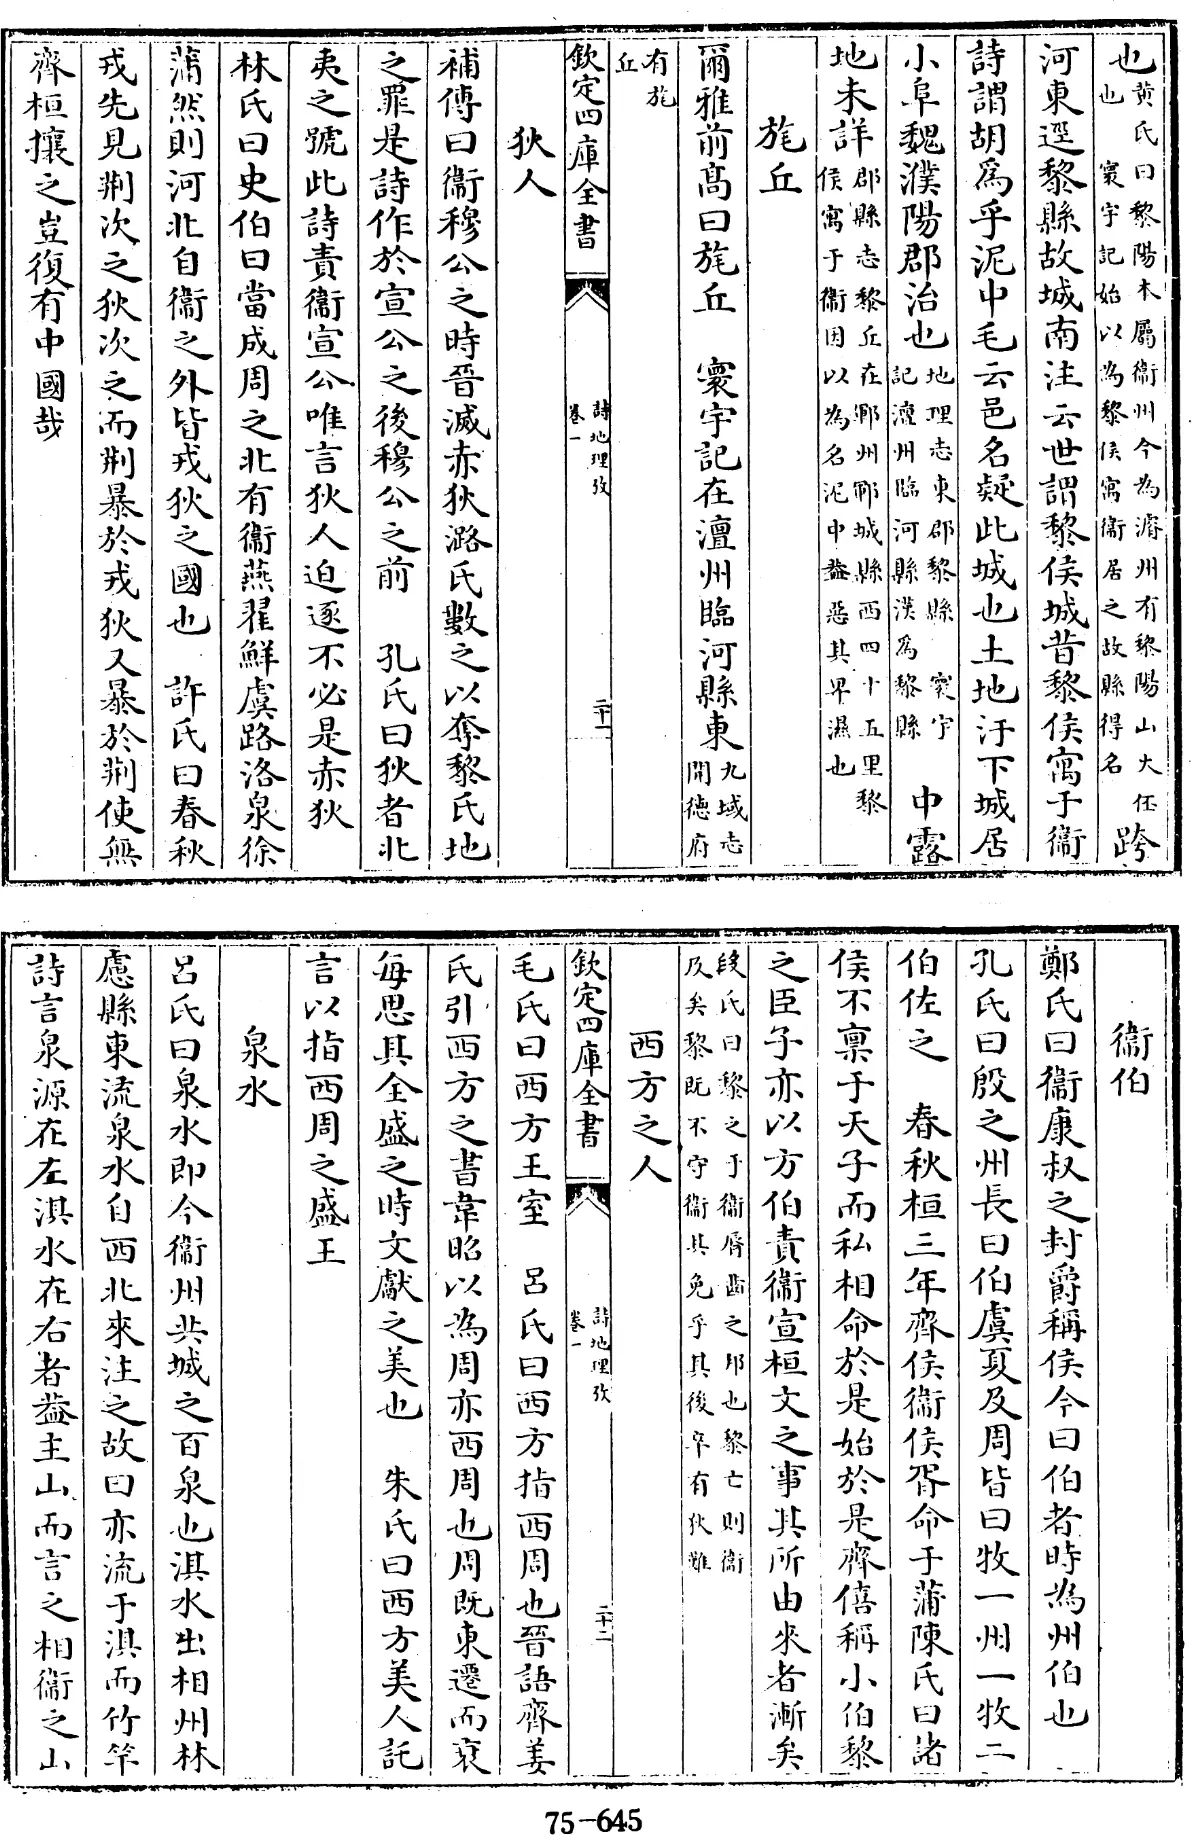 也黄氏曰黎陽本屬衛州今為濬州有黎陽山大伾
也寰宇記始以為黎侯寓衛居之故縣得名跨
河東逕黎縣故城南注云世謂黎侯城昔黎侯寓于衛
詩謂胡爲乎泥中毛云邑名疑此城也土地汙下城居
小阜魏濮陽郡治也地理志東郡黎縣 寰宇
記澶州臨河縣漢爲黎縣 中露
地未詳郡縣志黎丘在鄆州鄆城縣西四十五里黎
侯寓于衛因以為名泥中葢惡其卑濕也
旄丘
爾雅前髙曰旄丘 寰宇記在澶州臨河縣東九域志
開德府
有旄
丘
欽定四庫全書 詩地理攷 卷一 二十一
狄人
補傳曰衞穆公之時晉滅赤狄潞氏數之以奪黎氏地
之罪是詩作於宣公之後穆公之前 孔氏曰狄者北
夷之號此詩責衞宣公唯言狄人迫逐不必是赤狄
林氏曰史伯曰當成周之北有衞燕翟鮮虞路洛泉徐
蒲然則河北自衞之外皆戎狄之國也 許氏曰春秋
戎先見荆次之狄次之而荆暴於戎狄又暴於荆使無
齊桓攘之豈復有中國哉
衞伯
鄭氏曰衞康叔之封爵稱侯今曰伯者時為州伯也
孔氏曰殷之州長曰伯虞夏及周皆曰牧一州一牧二
伯佐之 春秋桓三年齊侯衞侯胥命于蒲陳氏曰諸
侯不禀于天子而私相命於是始於是齊僖稱小伯黎
之臣子亦以方伯責衞宣桓文之事其所由來者漸矣
段氏曰黎之于衞脣齒之邦也黎亡則衞
及矣黎既不守衞其免乎其後卒有狄難
西方之人
欽定四庫全書 詩地理攷 卷一 二十二
毛氏曰西方王室 呂氏曰西方指西周也晉語齊姜
氏引西方之書韋昭以為周亦西周也周既東遷而衰
每思其全盛之時文獻之美也 朱氏曰西方美人託
言以指西周之盛王
泉水
呂氏曰泉水即今衞州共城之百泉也淇水出相州林
慮縣東流泉水自西北來注之故曰亦流于淇而竹竿
詩言泉源在左淇水在右者葢主山而言之相衞之山
75-645